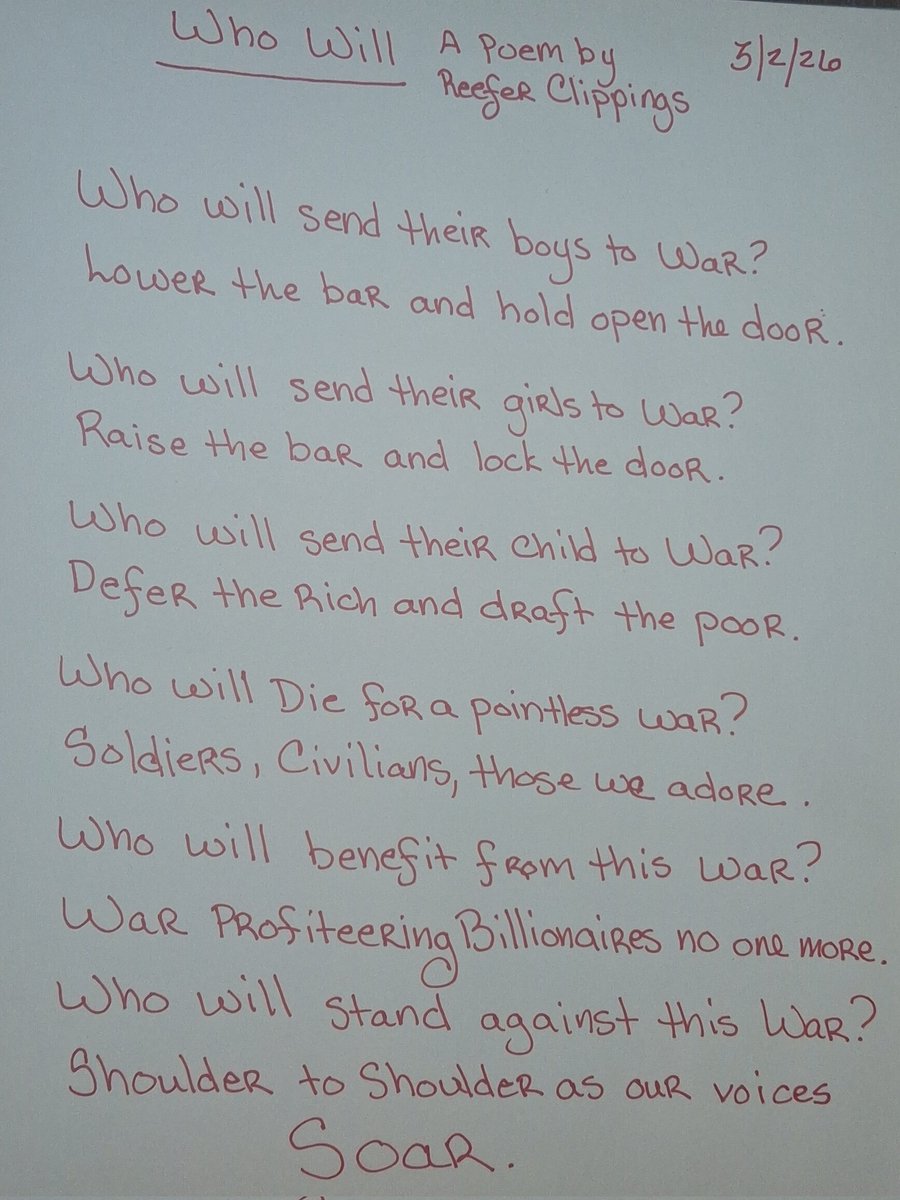 Who Will A Poem by
Reefer Clippings
3/2/26
Who will send their boys to War?
Lower the bar and hold open the door.
Who will send their girls to War?
Raise the bar and lock the door.
Who will send their child to War?
Defer the Rich and draft the poor.
Who will Die for a pointless war?
Soldiers, Civilians, those we adore.
Who will benefit from this war?
War Profiteering Billionaires no one more.
Who will stand against this War?
Shoulder to Shoulder as our voices
Soar.